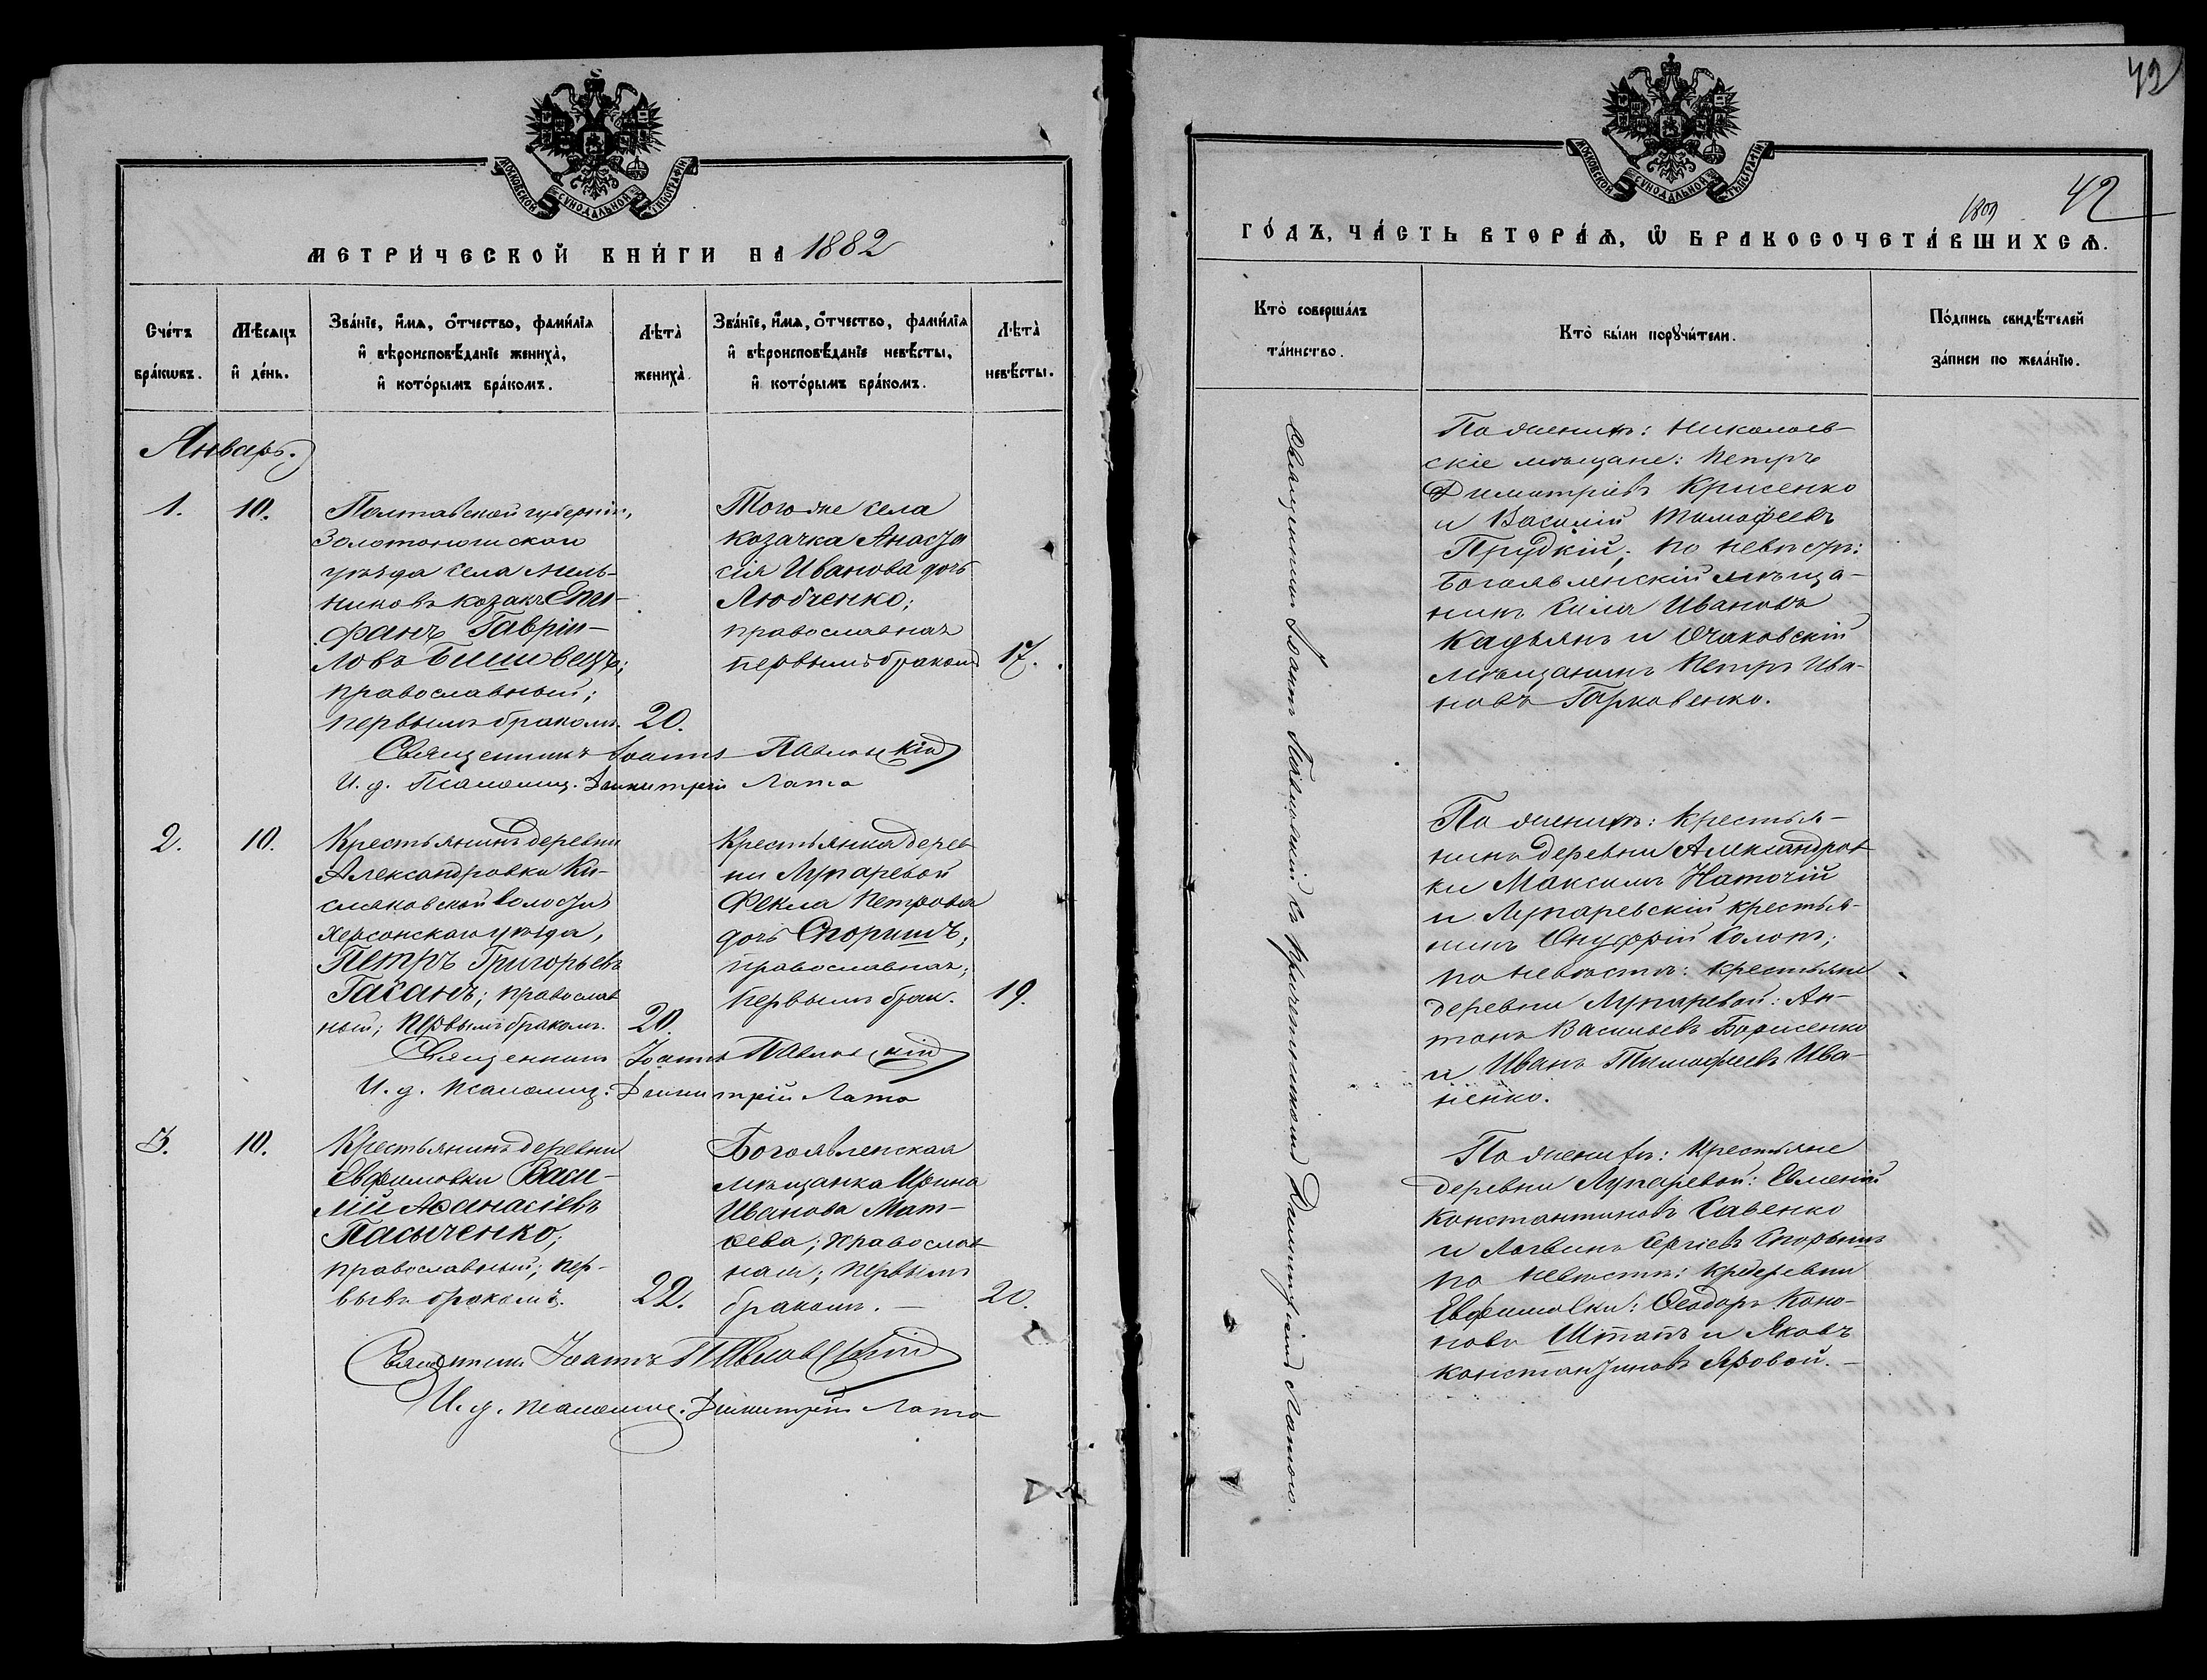 МОСКОВСКОЙ СѴНОДАЛЬНОЙ ТИПОГРАФІИ
МЕТРИ́ЧЕСКОЙ КНИ́ГИ НА 1882
Сче́тъ бра́кωвъ.
Мѣ́сяцъ и҆ де́нь.
Зва́нїе, и҆́мѧ, о҆́тчество, фами́лїѧ
и҆ вѣроисповѣ́данїе жениха̀,
и҆ кото́рымъ бра́комъ.
Лѣта̀
жениха̀.
Зва́нїе, и҆́мѧ, о҆́тчество, фами́лїѧ
и҆ вѣроисповѣ́данїе невѣ́сты,
и҆ кото́рымъ бра́комъ.
Лѣта̀
невѣ́сты.
Январь.
1.
10.
Полтавской губерніи,
Золотоношскаго
уѣзда села Мель-
никовъ козакъ Епи-
фанъ Гавріи-
ловъ Бишовецъ;
православный;
первымъ бракомъ.
20.
Того же села
козачка Анаста
сія Иванова дочь
Любченко;
православная
первымъ бракомъ
17.
Священникъ Іоаннъ Павловскій
И. д. Псаломщ. Димитрій Лата
2.
10.
Крестьянинъ деревни
Александровки Ки-
сляковской волости
Херсонскаго уѣзда,
Петръ Григорьевъ
Гасанъ; православ
ный; первымъ бракомъ.
20.
Крестьянка дерев
ни Лупаревой
Фекла Петрова
дочь Споришъ;
православная;
первымъ брак.
19.
Священникъ Іоаннъ Павловскій
И. д. псаломщ. Димитрій Лата
3.
10.
Крестьянинъ деревни
Евфимовки Васи-
лій Аѳанасіевъ
Пасыченко;
православный; пер-
вымъ бракомъ.
22.
Богоявленская
мѣщанка Ирина
Иванова Мат-
ѳева; православ
ная; первымъ
бракомъ. —
20.
Священникъ Іоаннъ Павловскій
И. д. псаломщ. Димитрій Лата
42
МОСКОВСКОЙ СѴНОДАЛЬНОЙ ТИПОГРАФІИ
42
ГО́ДЪ, ЧА́СТЬ ВТОРА́Ѧ, Ѡ҆ БРАКОСОЧЕТА́ВШИХСѦ.
Кто̀ соверша́лъ
та́инство.
Кто̀ бы́ли порꙋчи́тели.
По́дпись свидѣ́телей
за́писи по жела́нїю.
Священникъ Іоаннъ Павловскій съ причетникомъ Димитріемъ Латою.
По женихѣ: Николаев-
скіе мѣщане: Петръ
Димитріевъ Крисенко
и Василій Тимофеевъ
Прудкій; по невѣстѣ:
Богоявленскій мѣща-
нинъ Сила Ивановъ
Кадьянъ и Очаковскій
мѣщанинъ Петръ Ива-
новъ Гарковенко.
По женихѣ: Крестья-
нинъ деревни Александров
ки Максимъ Наточій
и Лупаревскій крестья-
нинъ Онуфрій Солопъ;
по невѣстѣ: крестьяне
деревни Лупаревой: Ан-
тонъ Васильевъ Борисенко
и Иванъ Тимофеевъ Ива-
ненко.
По женихѣ: Крестьяне
деревни Лупаревой: Евменій
Константиновъ Савенко
и Логвинъ Сергіевъ Споришъ
по невѣстѣ: кр. деревни
Евфимовки: Ѳеодоръ Коно-
новъ Штапъ и Яковъ
Константиновъ Яровой. —